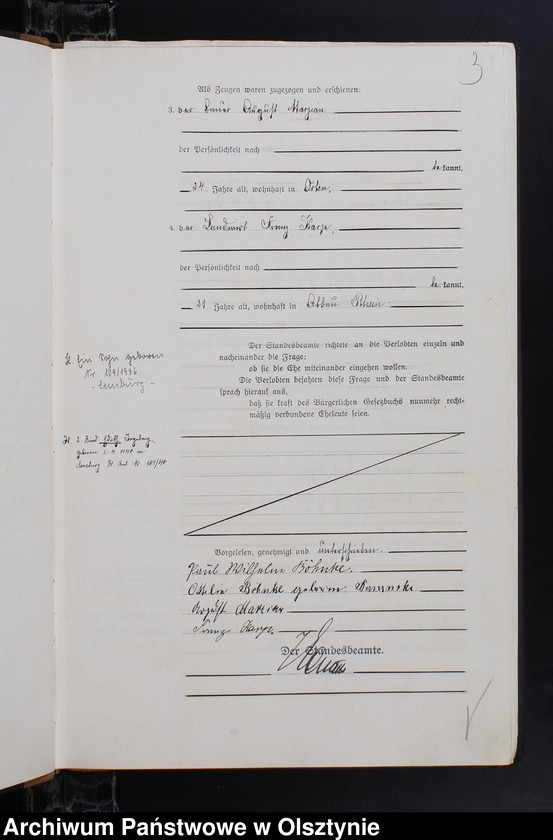 3
Als Zeugen waren zugezogen und erschienen:
3. der Bauer August Marzian
der Persönlichkeit nach
be kannt,
24 Jahre alt, wohnhaft in Orlen,
4. der Landwirt Franz Karp,
der Persönlichkeit nach
be kannt,
31 Jahre alt, wohnhaft in Abbau Rhein
Der Standesbeamte richtete an die Verlobten einzeln und
nacheinander die Frage:
ob sie die Ehe miteinander eingehen wollen.
Die Verlobten bejahten diese Frage und der Standesbeamte
sprach hierauf aus,
daß sie kraft des Bürgerlichen Gesetzbuchs nunmehr recht-
mäßig verbundene Eheleute seien.
Ein Sohn geboren
Nr. 189/1936
- Sensburg -
2. Kind
geboren 1940 in
Sensburg
Vorgelesen, genehmigt und unterschrieben.
Paul Wilhelm Böhnke.
Ottilie Böhnke geborene
August Marzian
Franz Karp.
Der Standesbeamte.
Archiwum Państwowe w Olsztynie